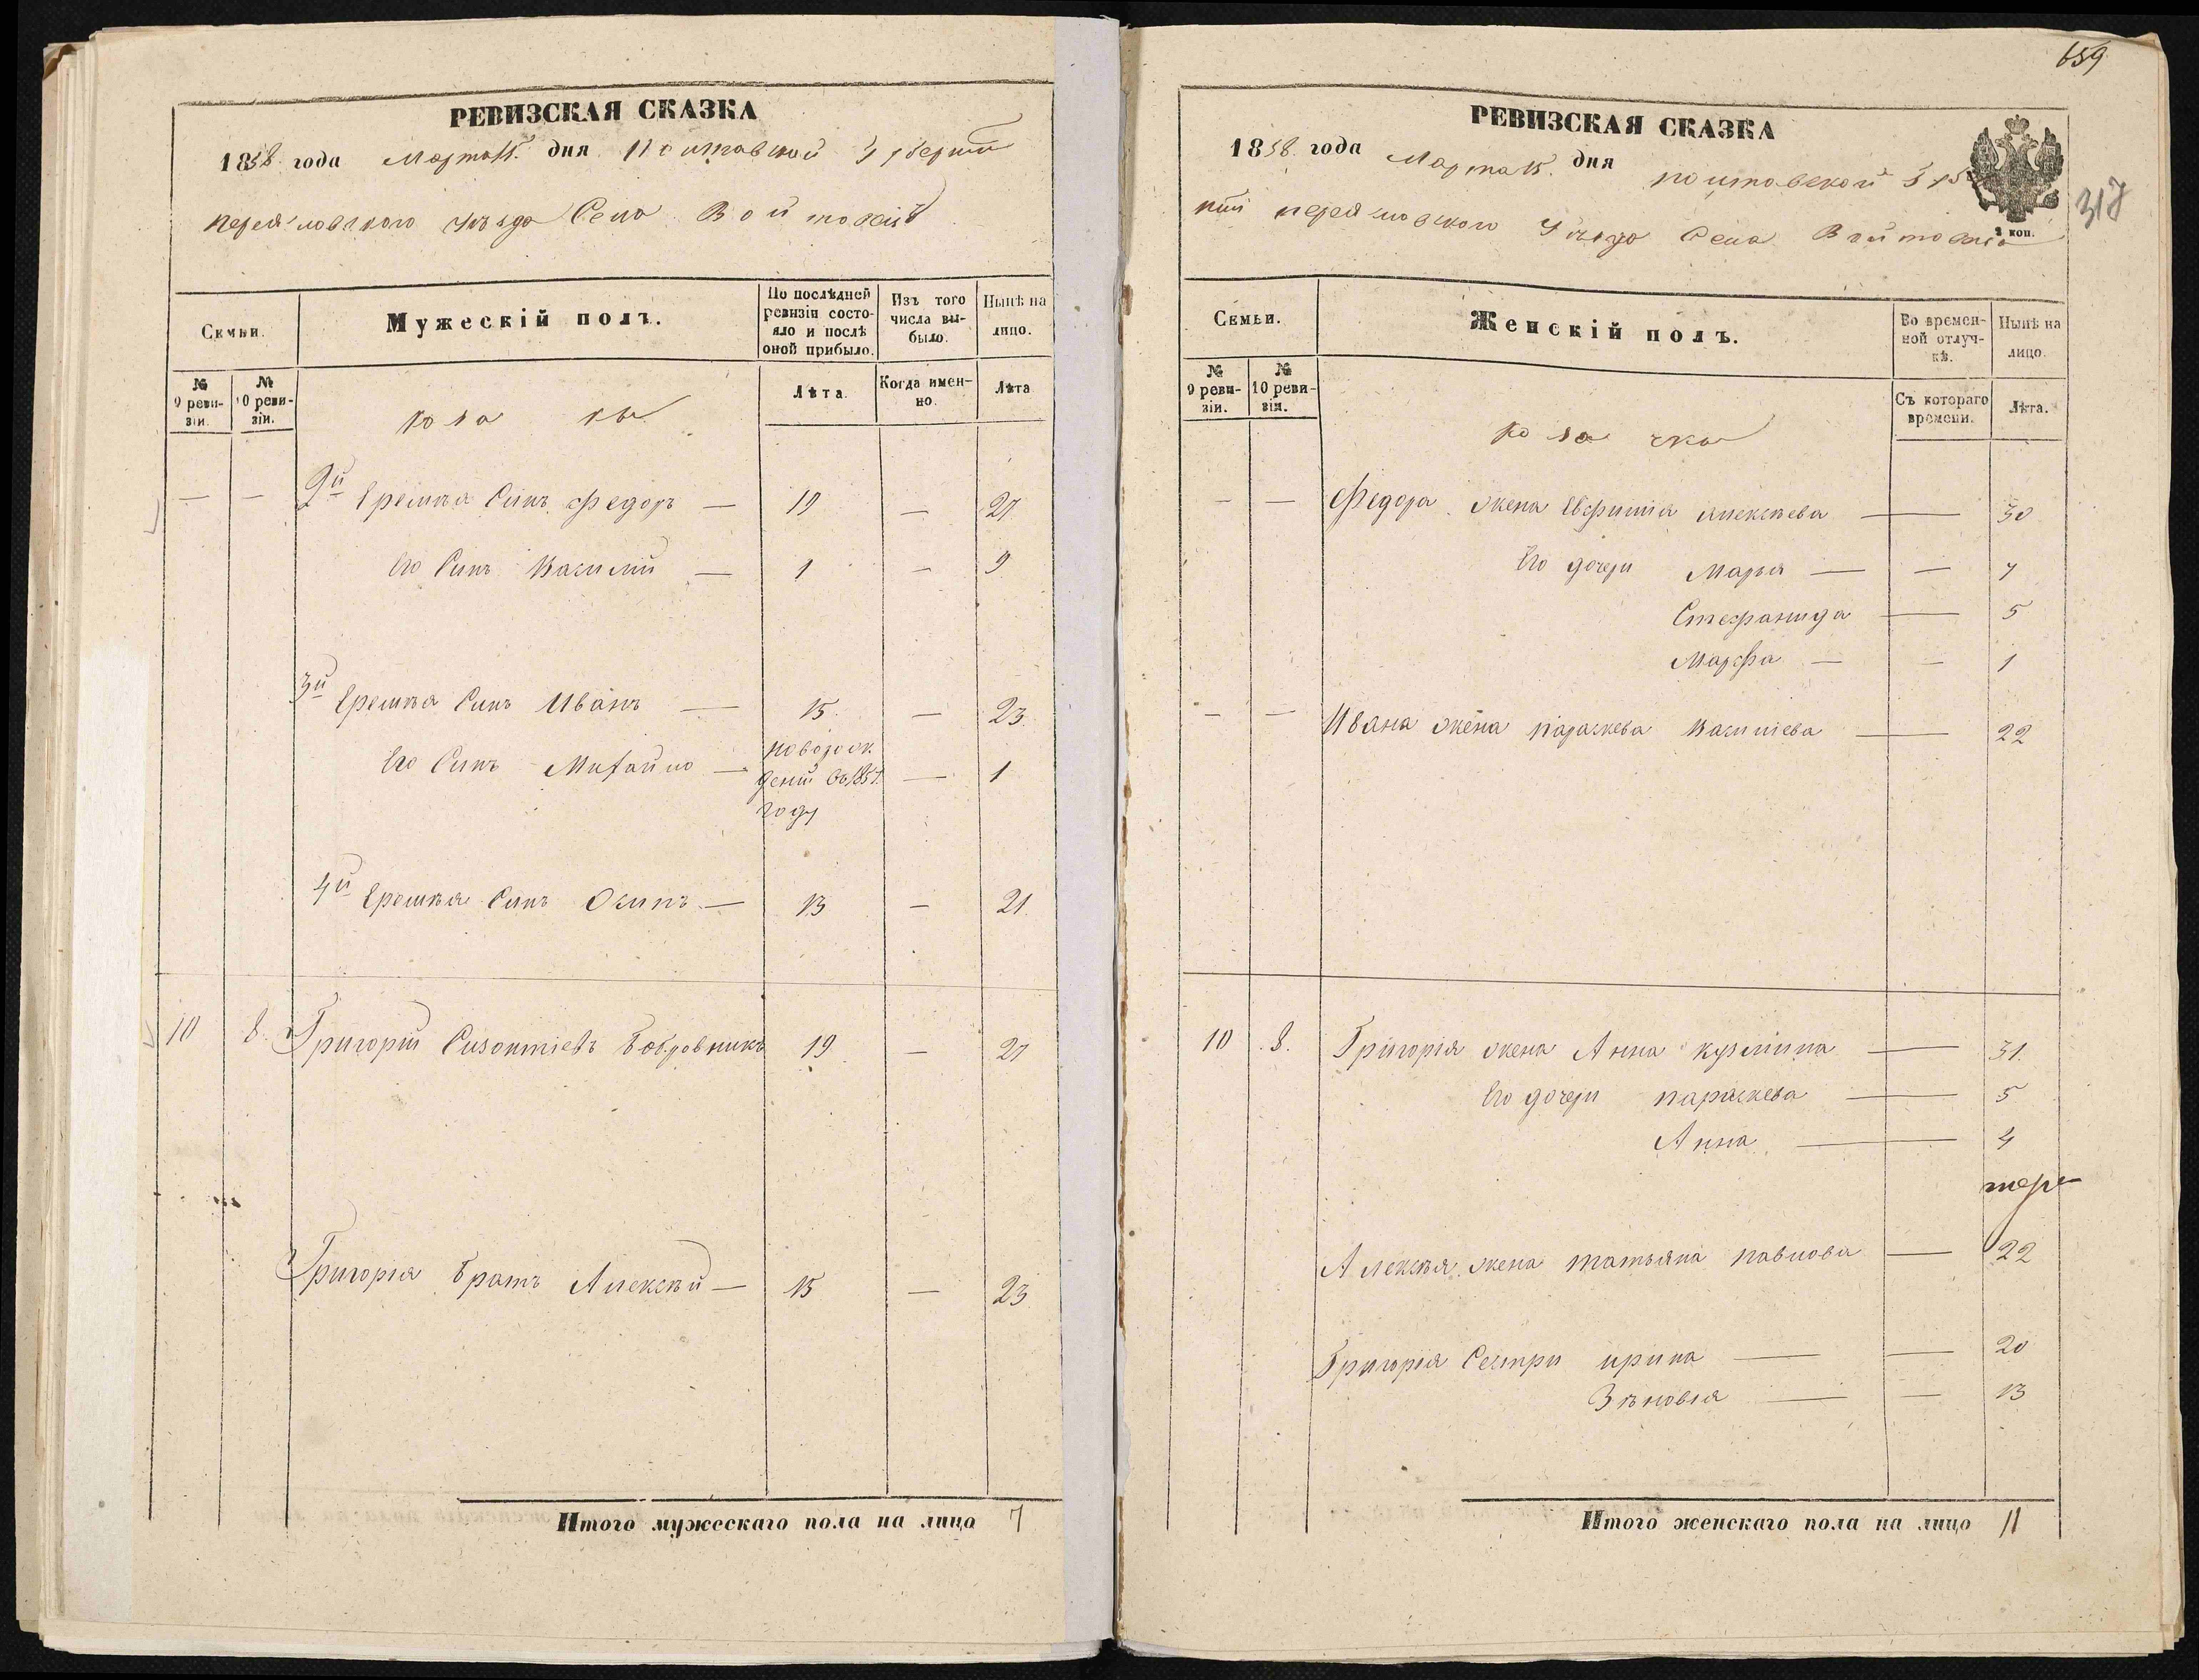 РЕВИЗСКАЯ СКАЗКА
1858 года Марта 15. дня Полтавской Губерніи
переяславского уѣзда Села Войтовецъ
Семьи.
Мужескій полъ.
По послѣдней ревизіи состояло и послѣ оной прибыло.
Изъ того числа выбыло.
Нынѣ на лицо.
№ 9 ревизіи.
№ 10 ревизіи.
Козаки
Лѣта.
Когда именно.
Лѣта
— — 2й Еремѣя Синъ Федоръ — 19 — 27
Его Синъ Василий — 1 — 9
3й Еремѣя Синъ Иванъ — 15 — 23
Его Синъ Михайло — новорож
дений въ 1857 — 1
году
4й Еремѣя Синъ Осипъ — 13 — 21
10 8. Григорий Сизонтіевъ Бобровникъ 19 — 27
Григорія братъ Алексѣй — 15 — 23
Итого мужескаго пола на лицо 7
659
РЕВИЗСКАЯ СКАЗКА
1858 года Марта 15. дня полтавской Губе
рніи переяславского Уѣзда Села
317
2 коп.
Семьи.
Женскій полъ.
Во временной отлучкѣ.
Нынѣ на лицо.
№ 9 ревизіи.
№ 10 ревизія.
Козачки
Съ котораго времени.
Лѣта.
— — Федора жена Евфимія алексѣева — 30
Его дочери Марья — — 7
Стефанида — 5
Марфа — — 1
— — Ивана жена параскева василіева — 22
10 8. Григорія жена Анна кузмина — 31.
Его дочери параскева — 5
Анна — 4
Алексѣя жена татьяна павлова — 22
Григорія Сестри ирина — — 20
Зѣновія — — 13
Итого женскаго пола на лицо 11